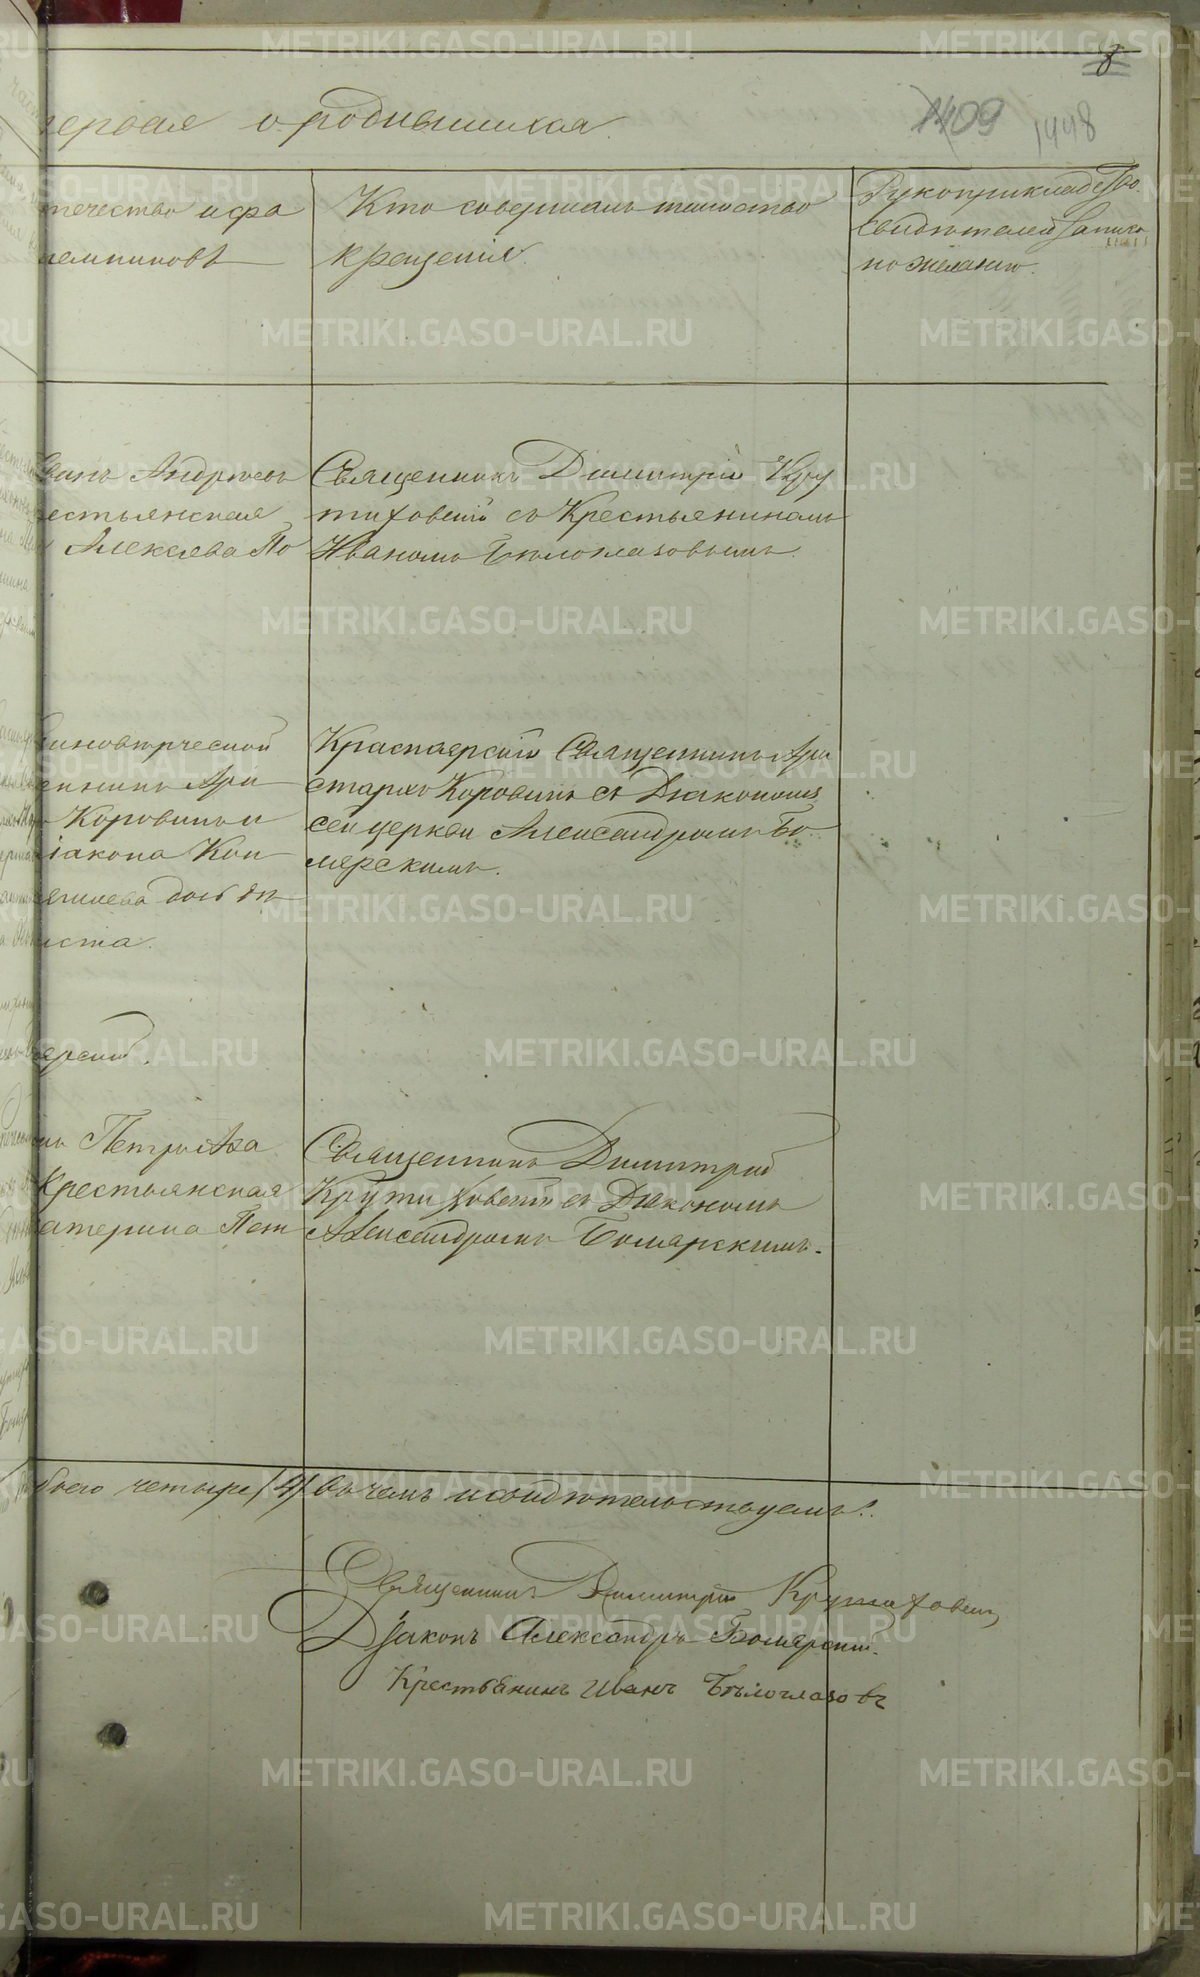 8
первая о родившихся
1409 1448
течество и фа
Кто совершалъ таинство
Рукоприкладство
мъ
крещенія.
свидѣтелей записи
по желанію.
Иванъ Андреевъ
естьянская
Алексѣева По
Священникъ Димитрій Кру
тиховскій съ Крестьяниномъ
Иваномъ Бѣлоглазовымъ.
диновѣрческой
енникъ Ари
Коровинъ и
іакона Кон
дочь дѣ
иста.
Красноярскій Священникъ Ари
стархъ Коровинъ съ Діакономъ
сей церкви Александромъ Бо
мярскимъ.
ярскій.
Петровъ
Крестьянская
атерина Пет
Священникъ Димитрій
Крутиховскій съ Діакономъ
Александромъ Бомярскимъ.
боего четыре /4/ въ чемъ и свидѣтельствуемъ:
Священникъ Димитрій Крутиховскій
Діаконъ Александръ Бомярскій.
Крестьянинъ Иванъ Бѣлоглазовъ
METRIKI.GASO-URAL.RU